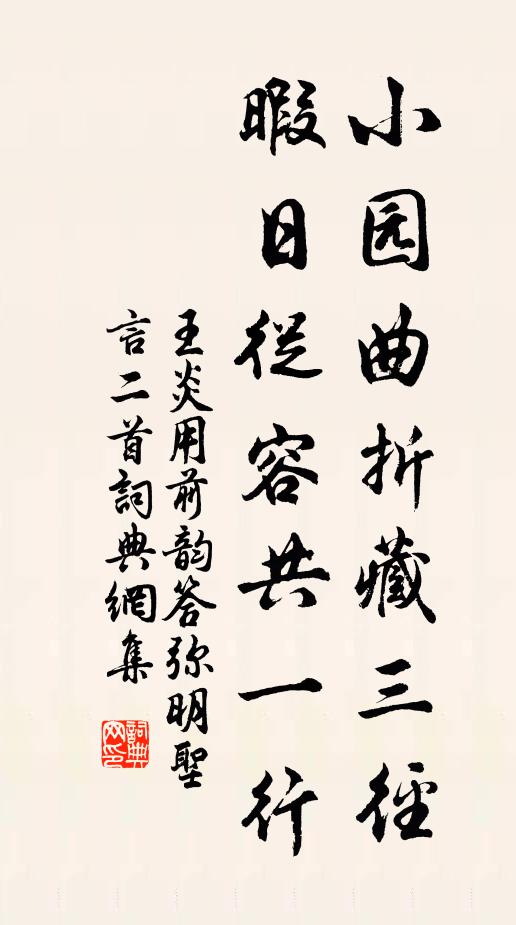 小园曲折藏三径
暇日從容共一行
王炎用前韵答弥明聖
言二首詞典網集
詞典网印